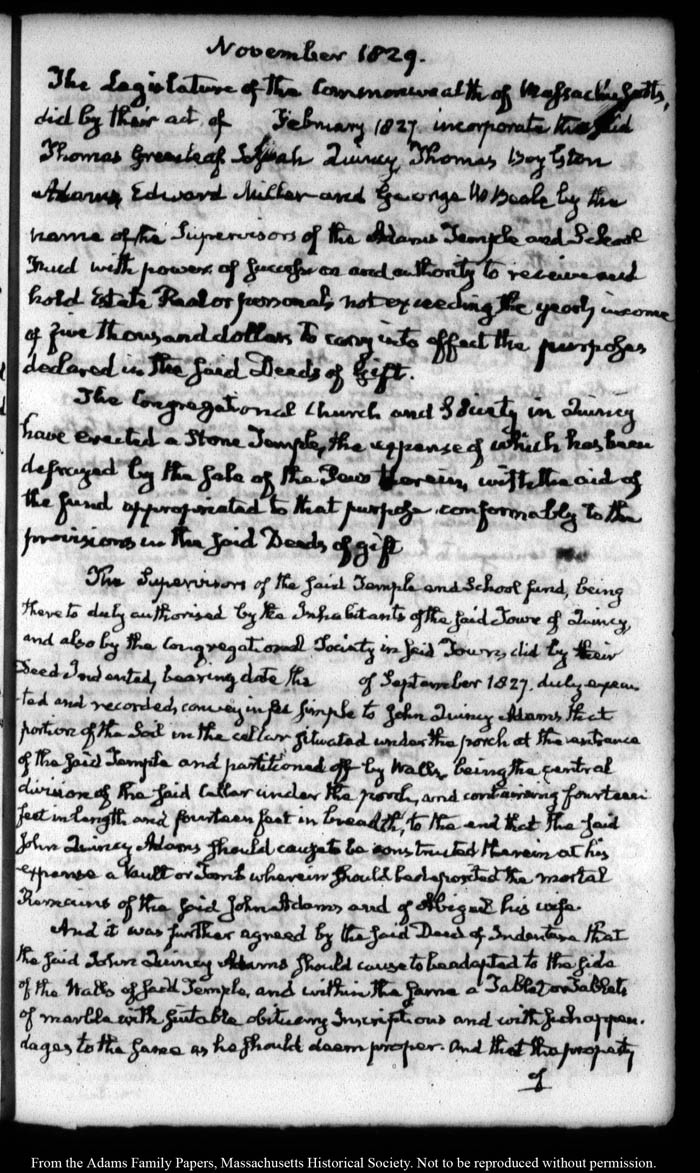 November 1829.
The Legislature of the Commonwealth of Massachusetts,
did by their act, of February 1827. incorporate the said
Thomas Greenleaf Josiah Quincy, Thomas Boylston
Adams, Edward Miller and George W Beale by the
name of the Supervisors of the Adams Temple and School
Fund with power of succession and authority to receive and
hold Estate Real or personal, not exceeding the yearly income
of five thousand dollars to carry into effect the purposes
declared in the said Deeds of Gift.
The Congregational Church and Society in Quincy
have erected a Stone Temple, the expense of which has been
defrayed by the sale of the Pews therein, with the aid of
the fund appropriated to that purpose conformably to the
provisions in the said Deeds of gift
The Supervisors of the said Temple and School fund, being
thereto duly authorised by the Inhabitants of the said Town of Quincy,
and also by the Congregational Society in said Town, did by their
Deed Indented, bearing date the of September 1827. duly execu-
ted and recorded, convey in fee simple to John Quincy Adams that
portion of the Soil in the cellar situated under the porch at the entrance
of the said Temple and partitioned off by Walls, being the central
division of the said Cellar under the porch, and containing fourteen
feet in length and fourteen feet in breadth, to the end that the said
John Quincy Adams should cause to be constructed therein at his
expense a Vault or Tomb wherein should be deposited the mortal
Remains of the said John Adams and of Abigail his wife.
And it was further agreed by the said Deed of Indenture that
the said John Quincy Adams should cause to be adapted to the side
of the Walls of said Temple, and within the same a Tablet or Tablets
of marble with suitable obituary Inscriptions and with such appen-
dages to the same as he should deem proper. And that the property
of
From the Adams Family Papers, Massachusetts Historical Society. Not to be reproduced without permission.